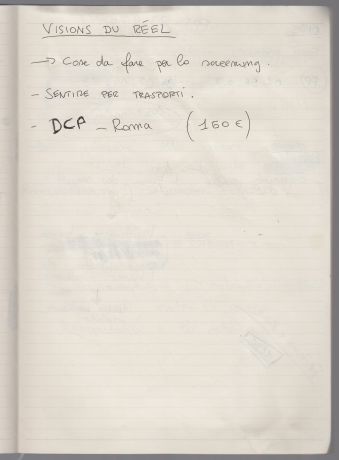 VISIONS DU RÉEL
→ Cose da fare per lo screening.
- SENTIRE PER TRASPORTI.
- DCP - Roma (150 €)